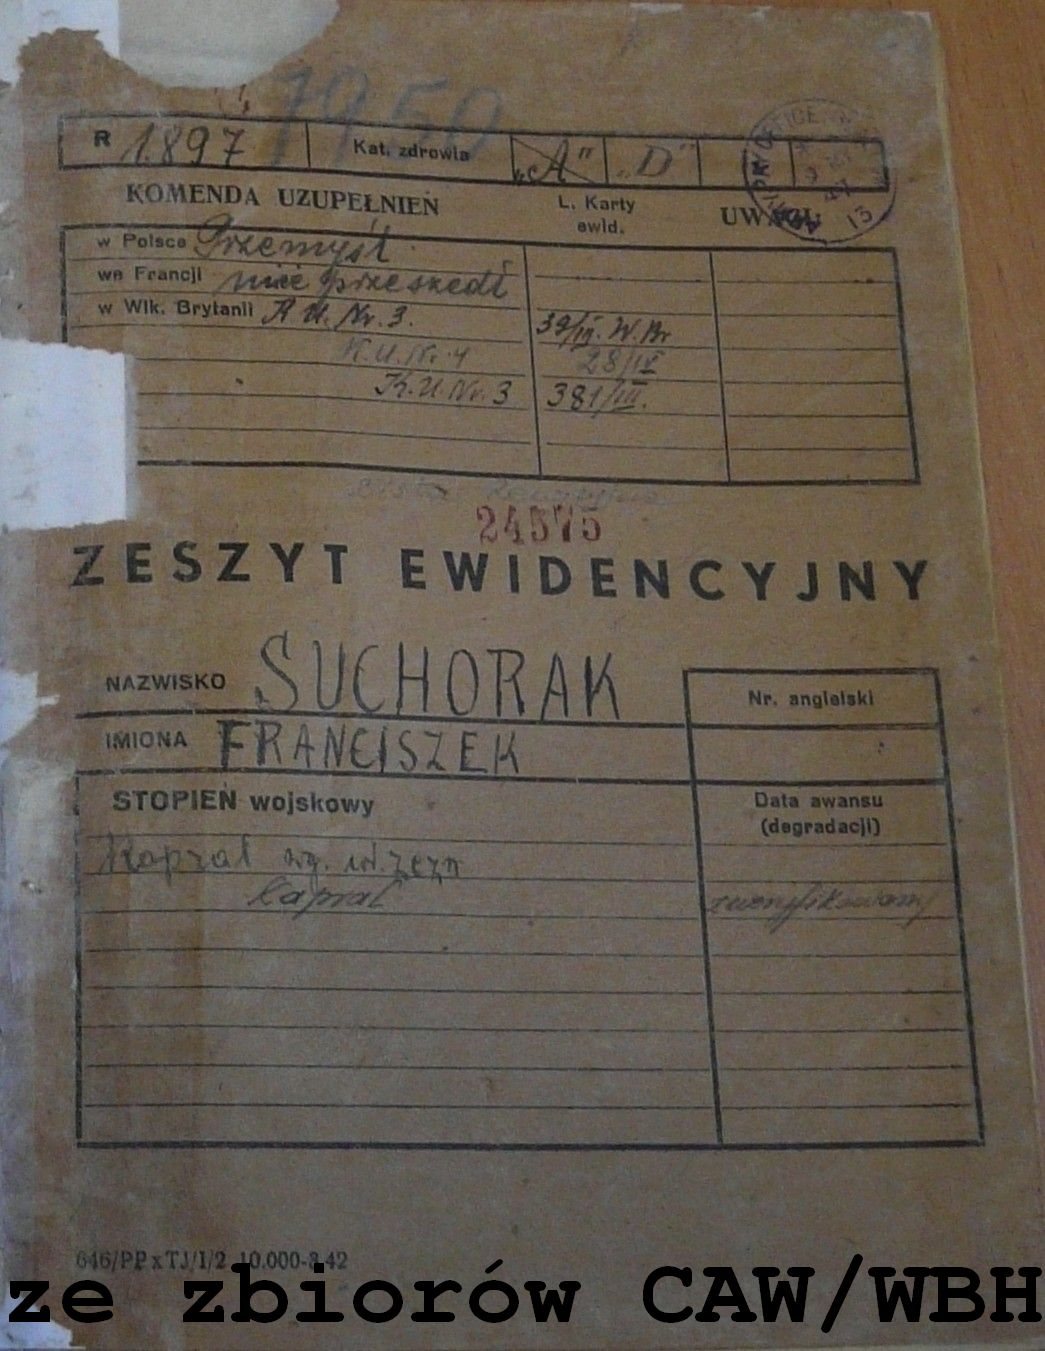 1950
R 1897 Kat. zdrowia „A" „D"
KOMENDA UZUPEŁNIEŃ L. Karty ewid. UWAGI
w Polsce Przemyśl
we Francji nie przeszedł
w Wlk. Brytanii K.U. Nr. 3. 39/III. W. Br
K.U. Nr. 4 28/IV
K.U. Nr. 3 381/III.
24575
ZESZYT EWIDENCYJNY
NAZWISKO SUCHORAK Nr. angielski
IMIONA FRANCISZEK
STOPIEŃ wojskowy Data awansu (degradacji)
Kapral wg. wł. zezn
kapral zweryfikowany
646/PP x TJ/I/2 10.000-3.42
ze zbiorów CAW/WBH